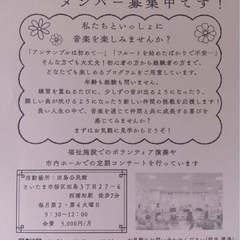 メンバー募集中です！
私たちといっしょに
音楽を楽しみませんか？
「アンサンブルは初めて…」「フルートを始めたばかりで不安…」
そんな方も大丈夫！初心者の方から経験者の方まで、
どなたでも楽しめるプログラムをご用意しています。
年齢も経験も問いません。
練習を重ねるたびに、少しずつ音が出るようになったり、
難しい曲が吹けるようになったり新しい仲間の挑戦を応援します！
長い人生の中で、音楽を通じて仲間と共に成長する喜びを
感じてみませんか？
まずはお気軽に見学からどうぞ！
福祉施設でのボランティア演奏や
市内ホールでの定期コンサートを行っています
活動場所：田島公民館
さいたま市桜区田島3丁目27－6
西浦和駅 徒歩7分
毎月第2・第4火曜日
9:30～12:00
会費 5,000円/月